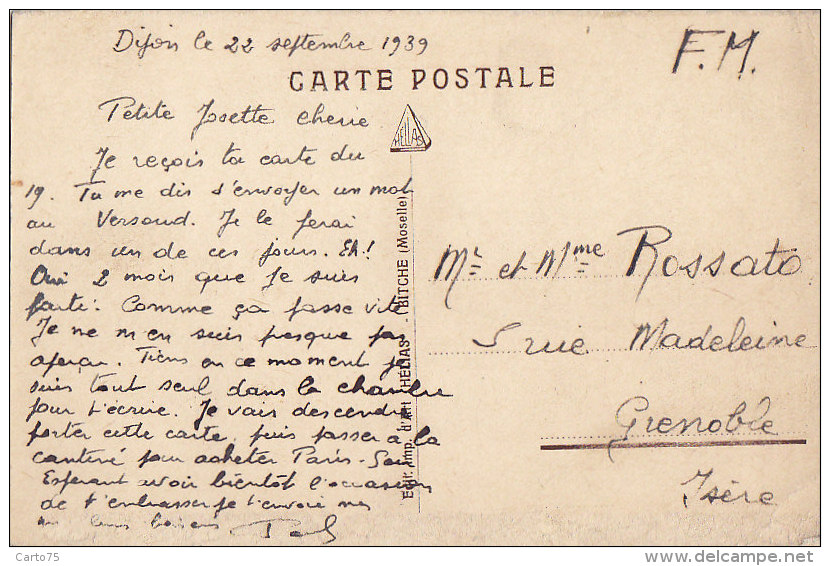 Dijon le 22 septembre 1939
F.M.
CARTE POSTALE
Petite Josette cherie
Je reçois ta carte du
19. Tu me dis d'envoyer un mot
au Versoud. Je le ferai
dans un de ces jours. Eh!
Oui 2 mois que je suis
parti. Comme ça passe vite
Je ne m'en suis presque pas
aperçu. Tiens en ce moment je
suis tout seul dans la chambre
pour t'écrire. Je vais descendre
porter cette carte, puis passer a la
cantine pour acheter Paris-Soir
Esperant avoir bientôt l'occasion
de t'embrasser je t'envoie mes
baisers Paul
HELIAS
Edit. Imp. d'Art HÉLIAS - BITCHE (Moselle)
Mr et Mme Rossato
5 rue Madeleine
Grenoble
Isère
Carto75
www.delcampe.net